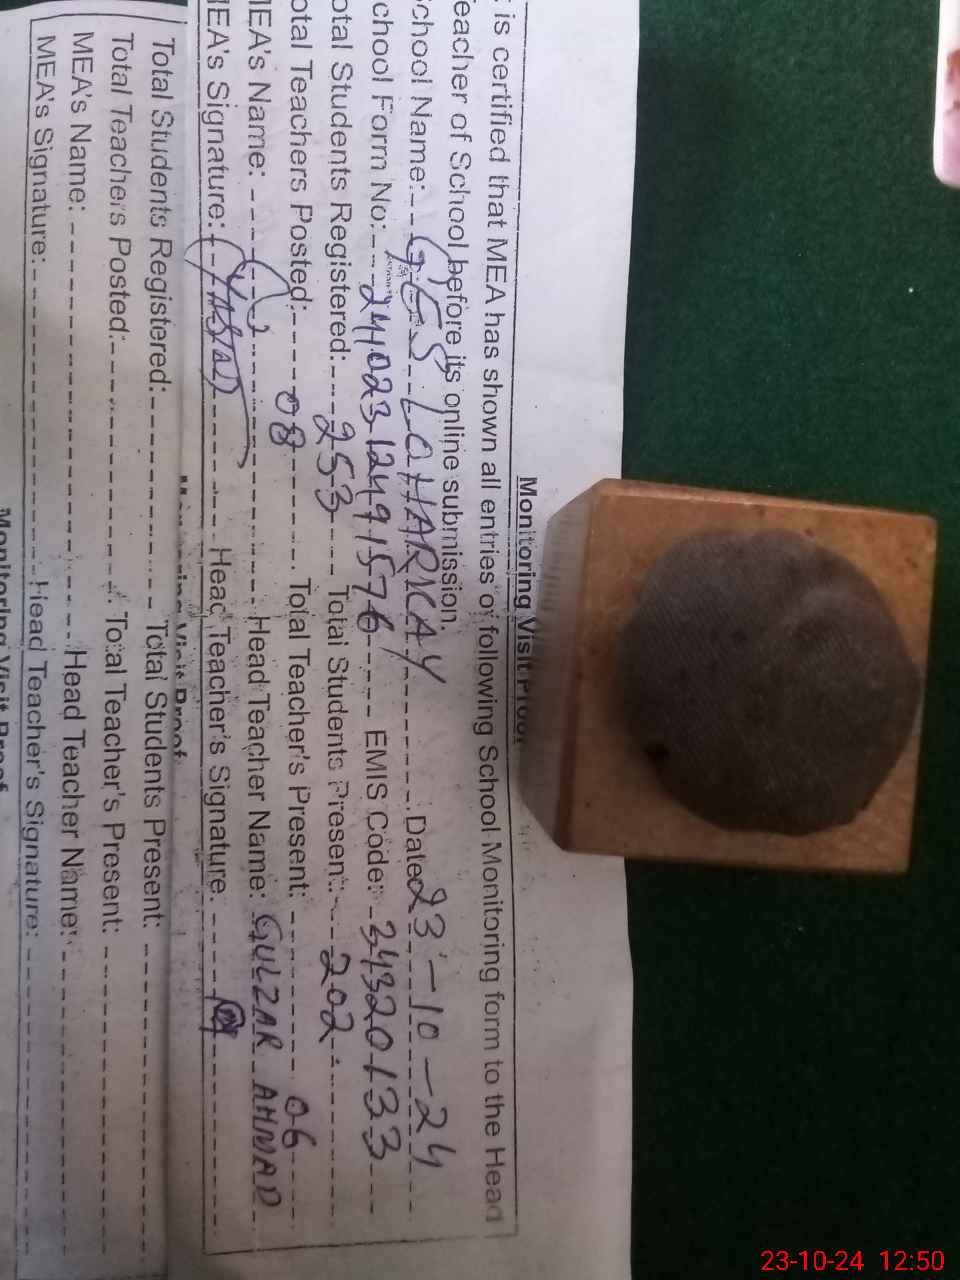 Monitoring Visit Proof
is certified that MEA has shown all entries of following School Monitoring form to the Head
eacher of School before its online submission.
School Name: GES LOHARKAY Dated 23-10-24
chool Form No: 24102312491576 EMIS Code: 34320133
otal Students Registered: 253 Total Students Present: 202
otal Teachers Posted: 08 Total Teacher's Present: 06
MEA's Name: Head Teacher Name: GULZAR AHMAD
MEA's Signature: Head Teacher's Signature.
Monitoring Visit Proof
Total Students Registered: Total Students Present:
Total Teachers Posted: Total Teacher's Present:
MEA's Name: Head Teacher Name:
MEA's Signature: Head Teacher's Signature:
Monitoring Visit Proof
23-10-24 12:50